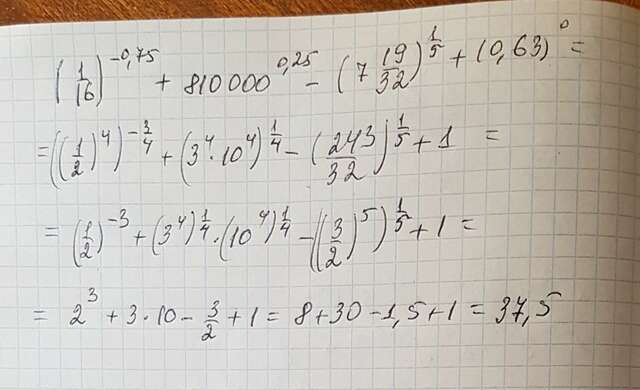 (1/16)^-0,75 + 810000^0,25 - (7 19/32)^1/5 + (0,63)^0 =
= ((1/2)^4)^-3/4 + (3^4 · 10^4)^1/4 - (243/32)^1/5 + 1 =
= (1/2)^-3 + (3^4)^1/4 · (10^4)^1/4 - ((3/2)^5)^1/5 + 1 =
= 2^3 + 3 · 10 - 3/2 + 1 = 8 + 30 - 1,5 + 1 = 37,5